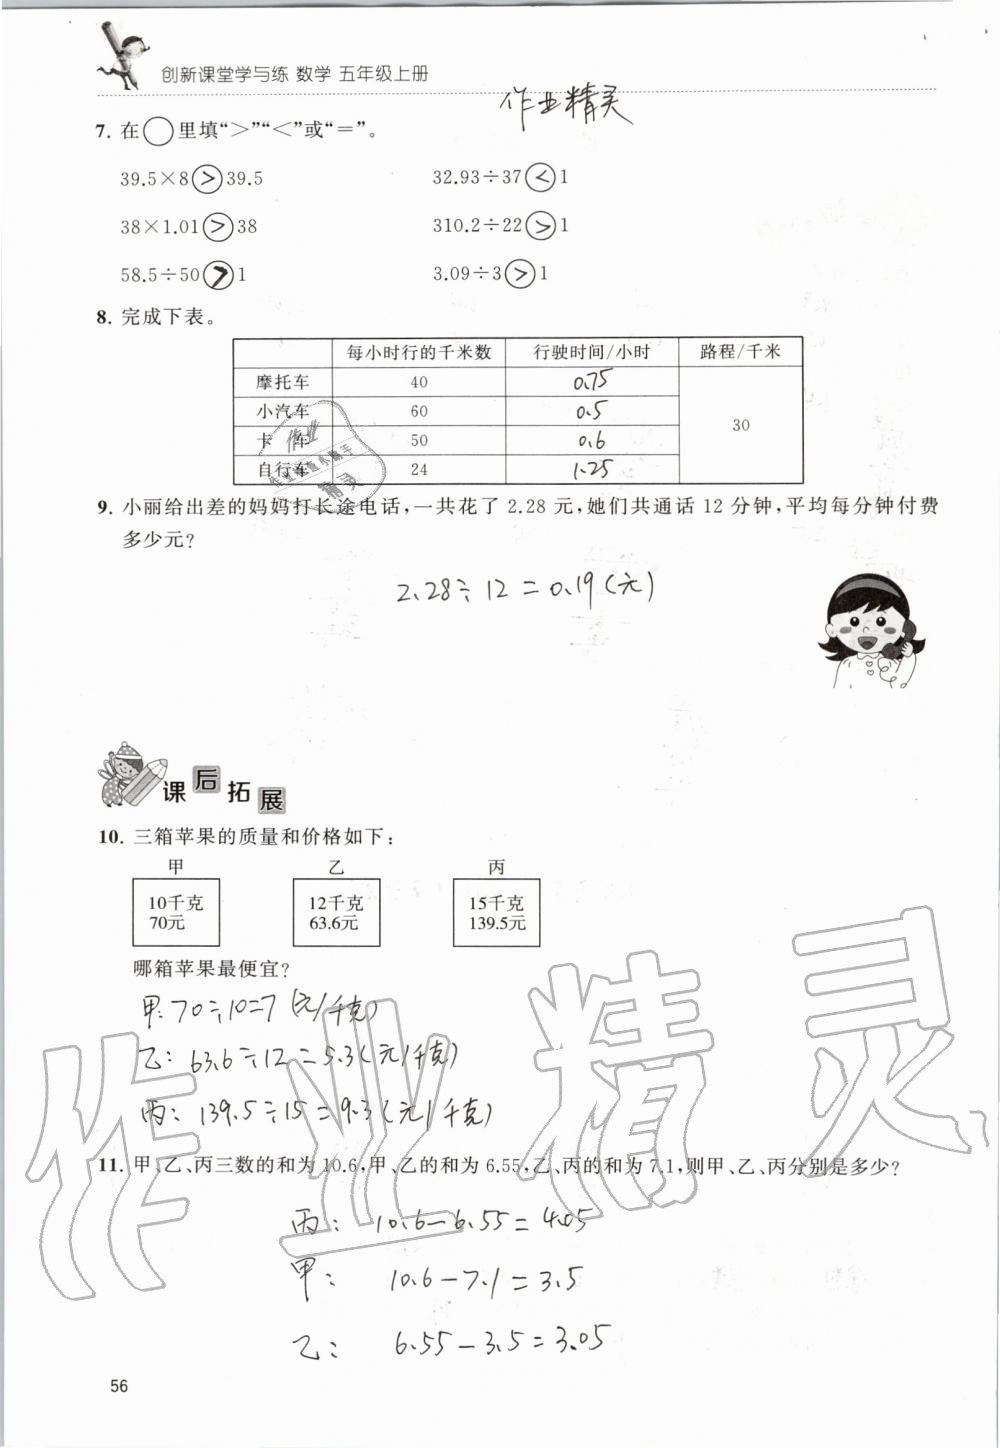 创新课堂学与练 数学 五年级上册
作业精灵
7. 在○里填“＞”“＜”或“＝”。
39.5×8＞39.5 32.93÷37＜1
38×1.01＞38 310.2÷22＞1
58.5÷50＞1 3.09÷3＞1
8. 完成下表。
每小时行的千米数 行驶时间/小时 路程/千米
摩托车 40 0.75
小汽车 60 0.5
30
卡 车 50 0.6
自行车 24 1.25
作业
作业检查小助手
精灵
9. 小丽给出差的妈妈打长途电话，一共花了 2.28 元，她们共通话 12 分钟，平均每分钟付费
多少元？
2.28÷12=0.19(元)
课后拓展
10. 三箱苹果的质量和价格如下：
甲 乙 丙
10千克 12千克 15千克
70元 63.6元 139.5元
哪箱苹果最便宜？
甲:70÷10=7(元/千克)
乙:63.6÷12=5.3(元/千克)
丙:139.5÷15=9.3(元/千克)
作业精灵
11. 甲、乙、丙三数的和为 10.6，甲、乙的和为 6.55，乙、丙的和为 7.1，则甲、乙、丙分别是多少？
丙: 10.6-6.55=4.05
甲: 10.6-7.1=3.5
乙: 6.55-3.5=3.05
56